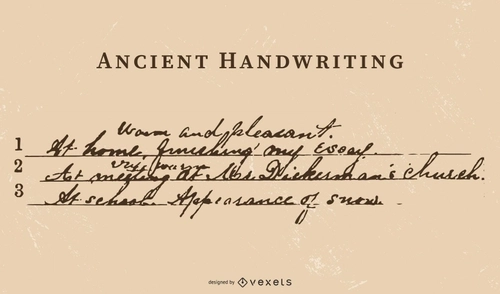 ANCIENT HANDWRITING
Warm and pleasant.
1 At home, finishing my essay.
very warm
2 At meeting at Mr Dickerman's church.
3 At school. Appearance of snow.
designed by vexels